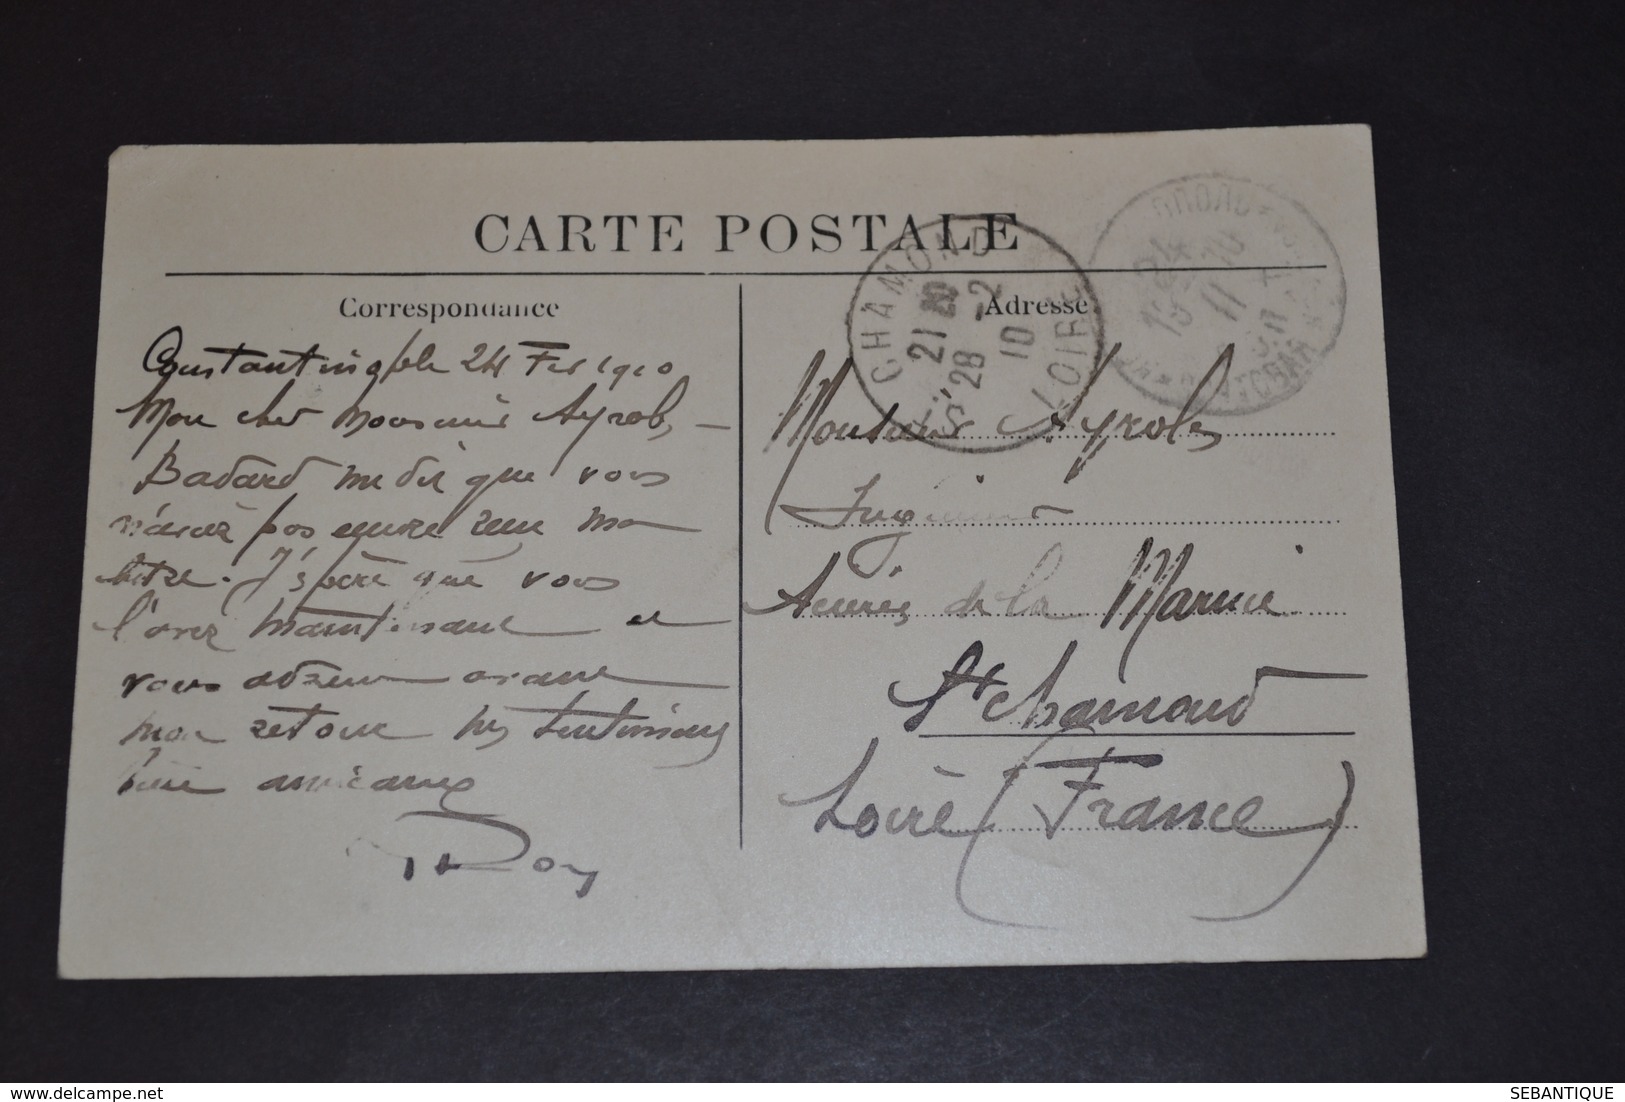 CARTE POSTALE
Correspondance
Constantinople 24 Fev 1910
Mon cher Monsieur Ayrolles, —
Badard me dit que vous
n'avez pas encore reçu ma
lettre. J'espère que vous
l'avez maintenant et
vous adresse avant
mon retour mes sentiments
bien amicaux
Adresse
Monsieur Ayroles
Ingénieur
Acieries de la Marine
St Chamond
Loire (France)
ST CHAMOND
LOIRE
21
28 -2
10
SEBANTIQUE